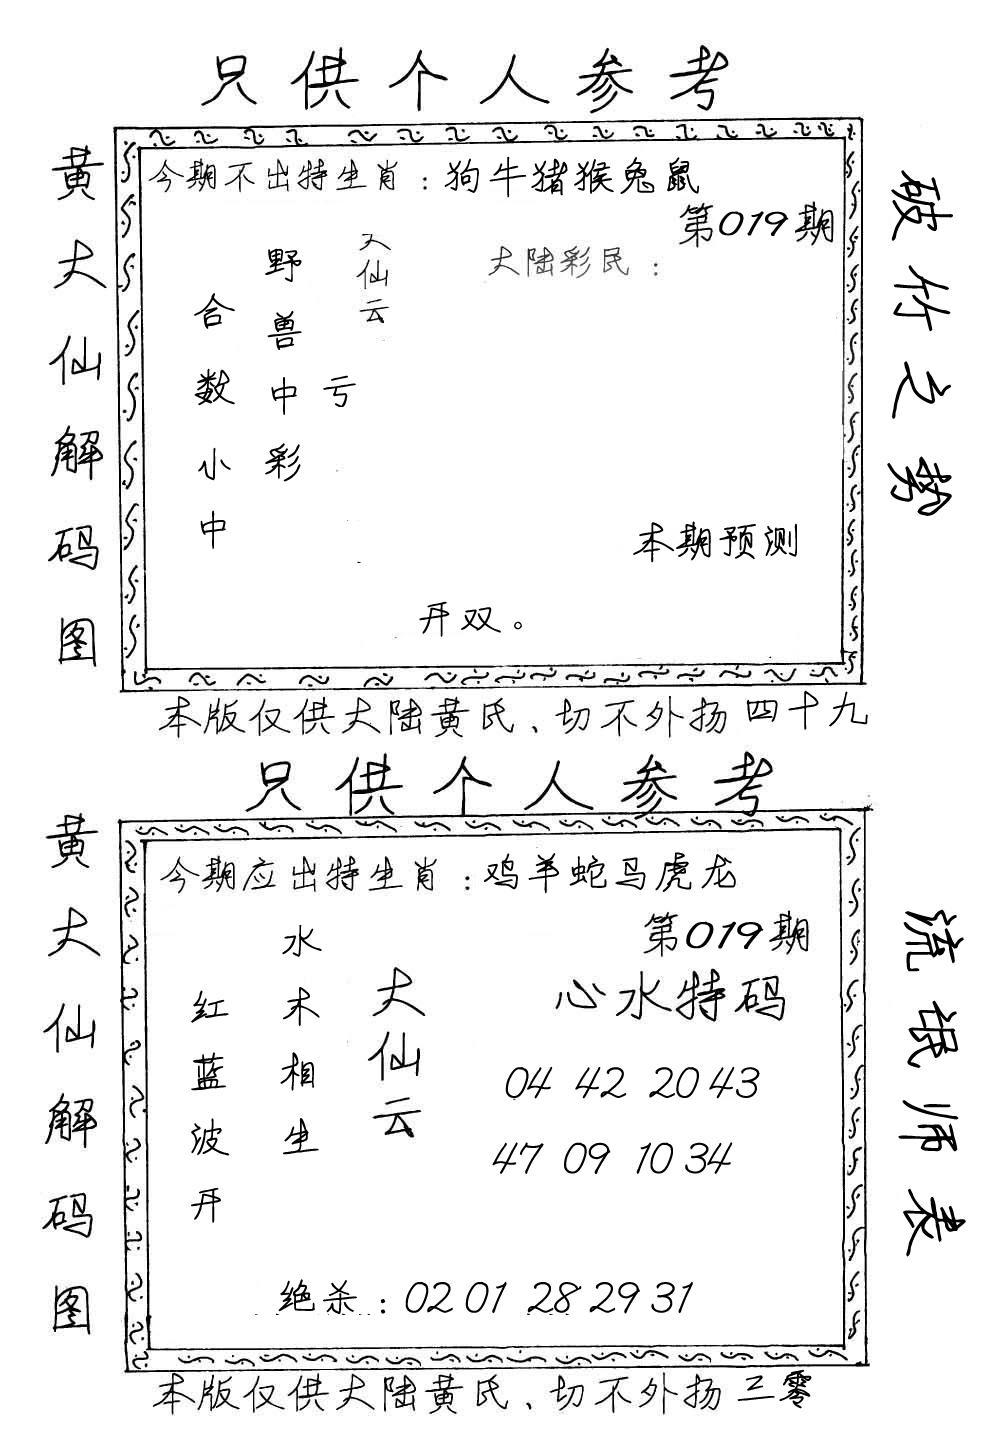 只供个人参考
黄大仙解码图
今期不出特生肖：狗牛猪猴兔鼠
第019期
大仙云
大陆彩民：
野兽中彩
合数小中
亏
本期预测
开双。
破竹之势
本版仅供大陆黄氏、切不外扬四十九
只供个人参考
黄大仙解码图
今期应出特生肖：鸡羊蛇马虎龙
第019期
心水特码
大仙云
水木相生
红蓝波开
04 42 20 43
47 09 10 34
绝杀：02 01 28 29 31
流氓师表
本版仅供大陆黄氏、切不外扬三零